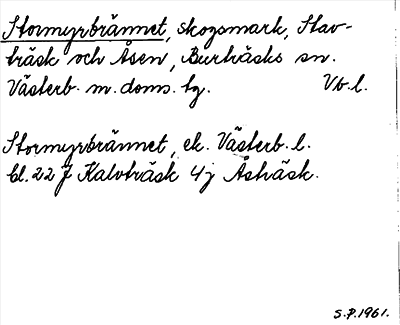 Stormyrbrännet, skogsmark, Stav-
träsk och Åsen, Burträsks sn.
Västerb. m. doms. tg. Vb. l.
Stormyrbrännet, ek. Västerb. l.
bl. 22 J Kalvträsk 4 j Åsträsk.
S.P. 1961.